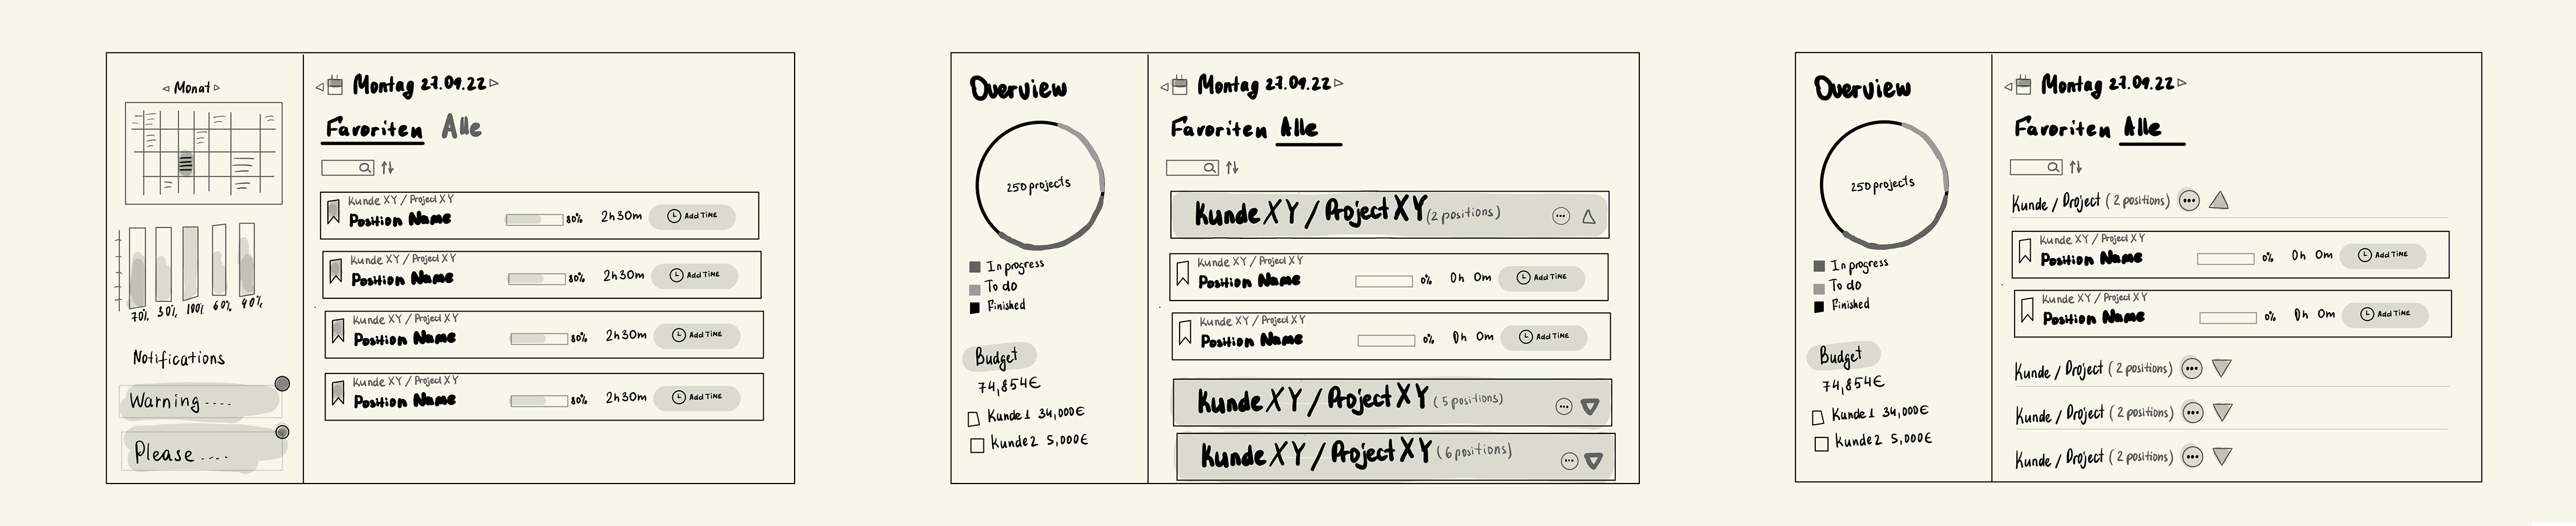 Monat
70% 30% 100% 60% 40%
Notifications
Warning ....
Please ....
Montag 27.09.22
Favoriten Alle
Kunde XY / Project XY
Position Name 80% 2h30m Add TIME
Kunde XY / Project XY
Position Name 80% 2h30m Add TIME
Kunde XY / Project XY
Position Name 80% 2h30m Add TIME
Kunde XY / Project XY
Position Name 80% 2h30m Add TIME
Overview
250 projects
In progress
To do
Finished
Budget
74,854€
Kunde1 34,000€
Kunde2 5,000€
Montag 27.09.22
Favoriten Alle
Kunde XY / Project XY (2 positions)
Kunde XY / Project XY
Position Name 0% 0h 0m Add TIME
Kunde XY / Project XY
Position Name 0% 0h 0m Add TIME
Kunde XY / Project XY (5 positions)
Kunde XY / Project XY (6 positions)
Overview
250 projects
In progress
To do
Finished
Budget
74,854€
Kunde1 34,000€
Kunde2 5,000€
Montag 27.09.22
Favoriten Alle
Kunde / Project (2 positions)
Kunde XY / Project XY
Position Name 0% 0h 0m Add TIME
Kunde XY / Project XY
Position Name 0% 0h 0m Add TIME
Kunde / Project (2 positions)
Kunde / Project (2 positions)
Kunde / Project (2 positions)